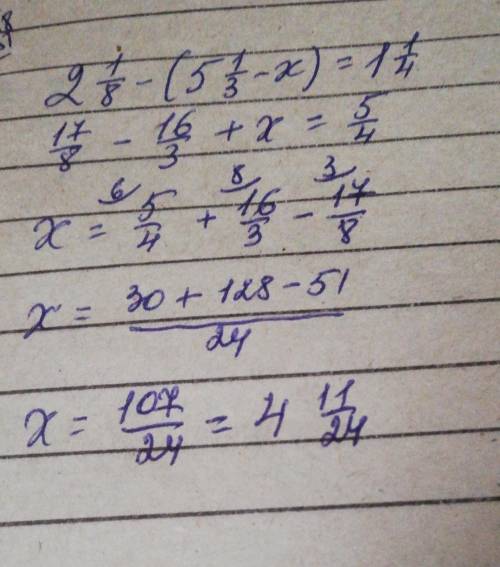 2 1/8 - (5 1/3 - x) = 1 1/4
17/8 - 16/3 + x = 5/4
x = 6 5/4 + 8 16/3 - 3 17/8
x = (30 + 128 - 51)/24
x = 107/24 = 4 11/24